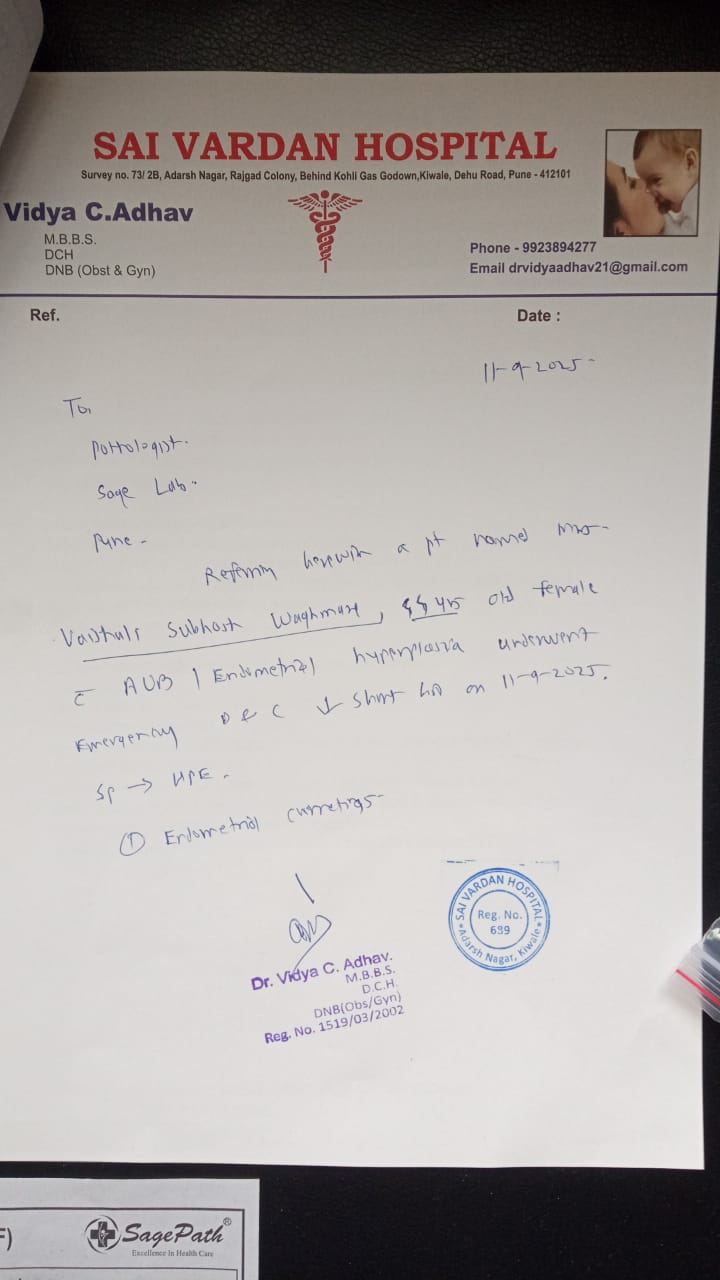 SAI VARDAN HOSPITAL
Survey no. 73/ 2B, Adarsh Nagar, Rajgad Colony, Behind Kohli Gas Godown,Kiwale, Dehu Road, Pune - 412101
Vidya C.Adhav
M.B.B.S.
DCH
DNB (Obst & Gyn)
Phone - 9923894277
Email drvidyaadhav21@gmail.com
Ref.
Date :
11-9-2025-
To,
Pathologist.
Sage Lab.
Pune -
Referring herewith a pt named Mrs-
Subhash Waghmare, old female
c̄ AUB / Endometrial hyperplasia underwent
Emergency D & C ↓ short on 11-9-2025.
Sp → HPE.
① Endometrial curretings-
Dr. Vidya C. Adhav.
M.B.B.S.
D.C.H.
DNB(Obs/Gyn)
Reg. No. 1519/03/2002
SAI VARDAN HOSPITAL
Reg. No.
639
Adarsh Nagar, Kiwale
SagePath®
Excellence In Health Care